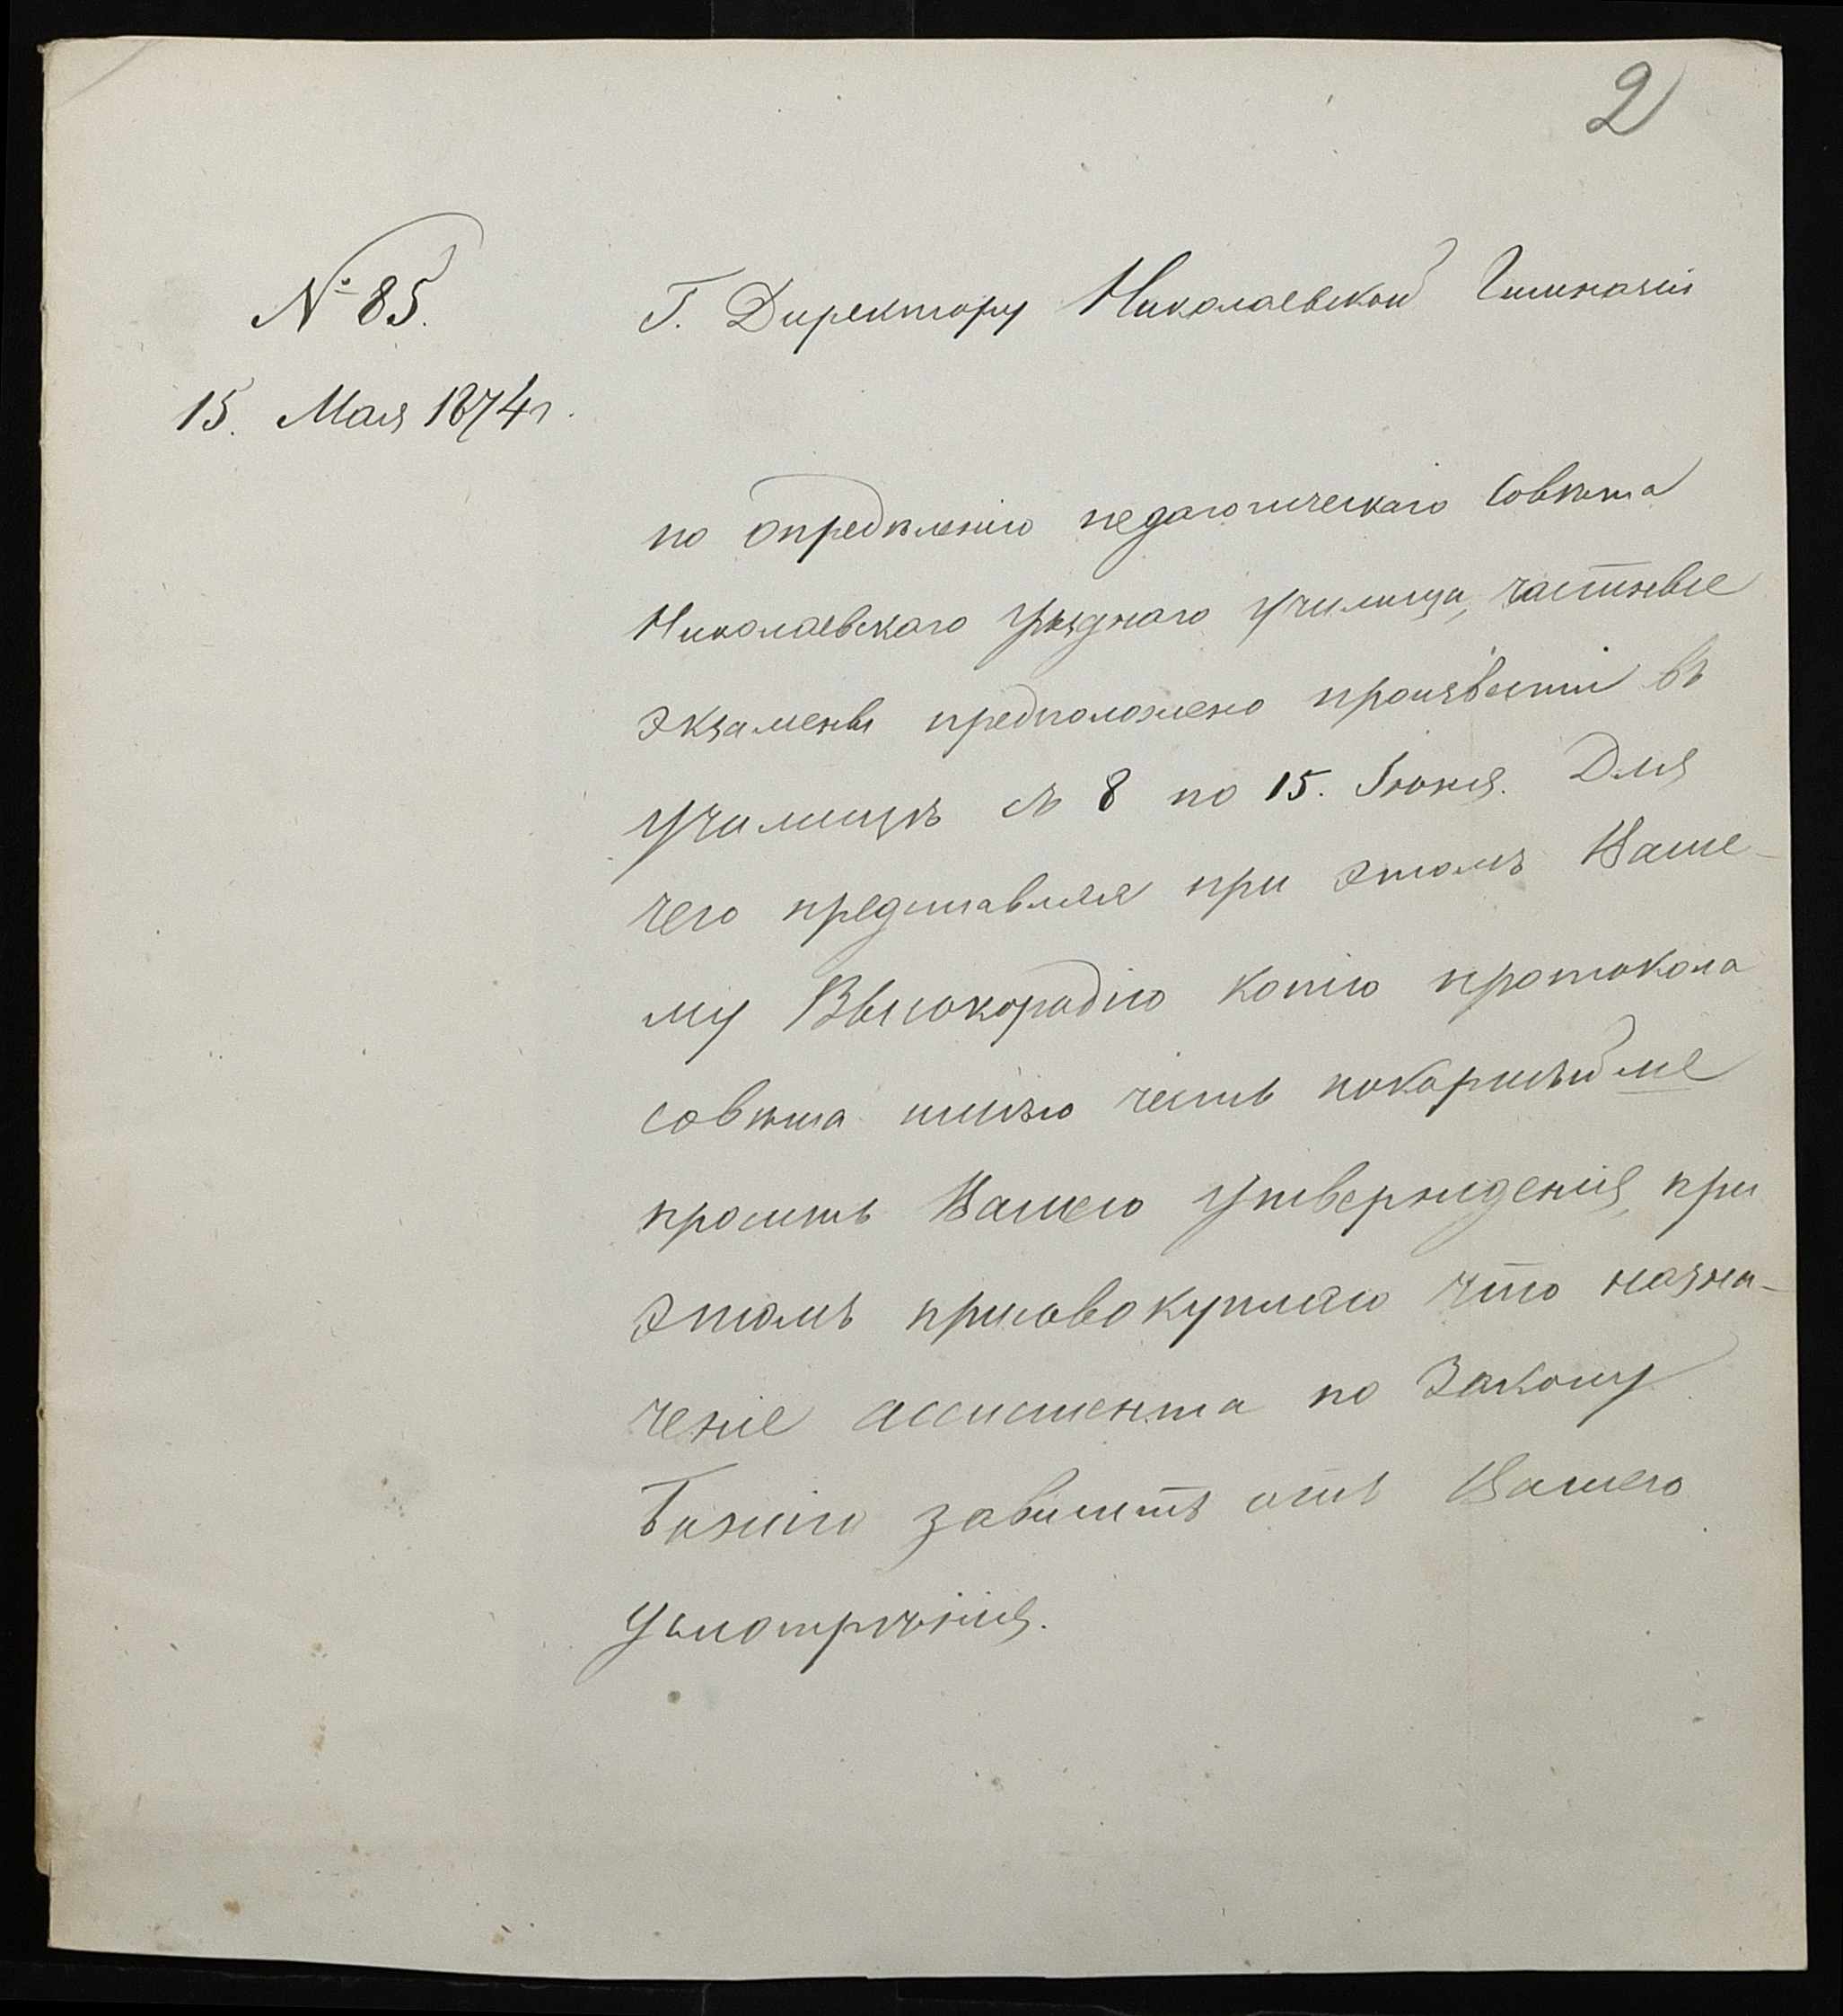 2
№ 85.
Г. Директору Николаевской Гимназіи
15. Мая 1874 г.
по опредѣленію педагогическаго Совѣта
Николаевскаго уѣзднаго училища, частные
экзамены предположено произвести въ
училищѣ съ 8 по 15. Іюня. Для
чего представляя при этомъ Ваше-
му Высокородію копію протокола
совѣта имѣю честь покорнѣйше
просить Вашего утвержденія, при
этомъ присовокупляю что назна-
ченіе ассистента по Закону
Божію зависитъ отъ Вашего
усмотрѣнія.